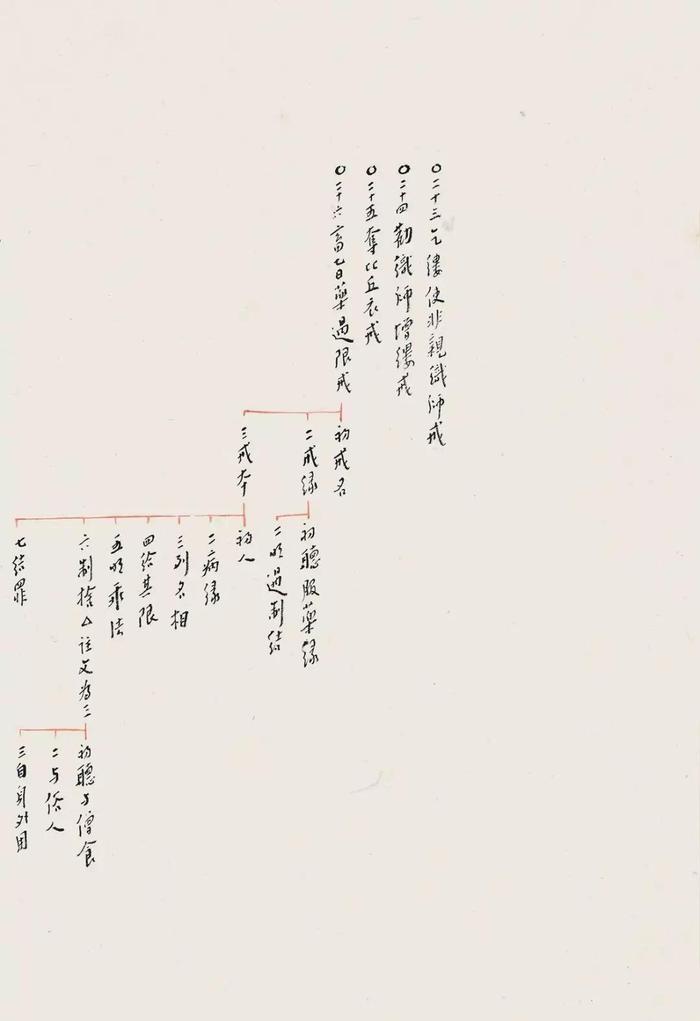 ○二十三乞縷使非親織師戒
○二十四勸織師增縷戒
○二十五奪比丘衣戒
○二十六畜七日藥過限戒
初戒名
二戒緣
三戒本
初聽服藥緣
二明過制結
初人
二病緣
三列名相
四給其限
五明乖法
六制捨△註文為三
七結罪
初聽与僧食
二与俗人
三自身外用